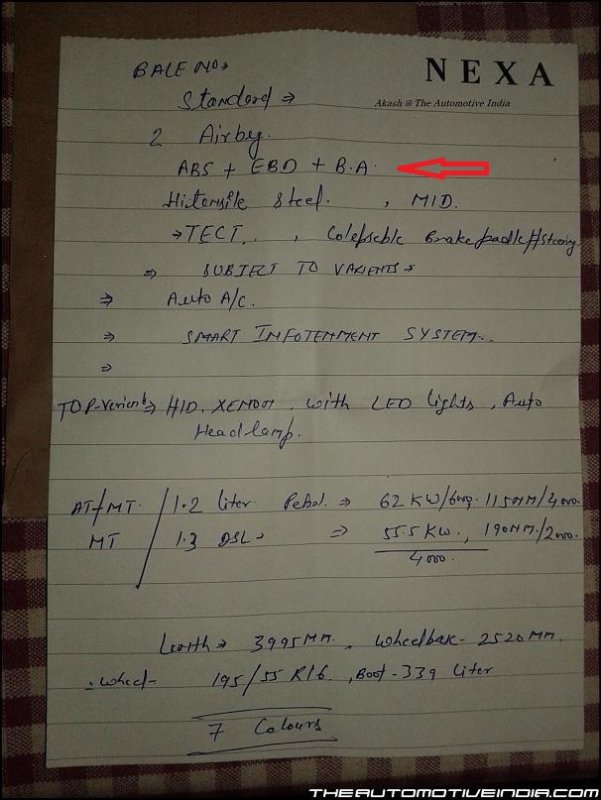 NEXA
BALENO
Akash @ The Automotive India
Standerd ⇒
2 Airbeg.
ABS + EBD + B.A.
Hitensile Steel. , MID.
→ TECT. , Colepseble Brake padle // Steering
⇒ SUBJECT TO VARIENTS
⇒ Auto A/c.
⇒ SMART INFOTENMENT SYSTEM.
⇒
TOP-Verient ⇒ HID. XENON. with LED lights, Auto
Head lamp.
AT/MT / 1.2 liter Petrol ⇒ 62 KW/6000. 115NM/4000.
MT / 1.3 DSL ⇒ 55.5 KW., 190NM./2000.
4000.
Lenth → 3995MM. , Wheelbase- 2520MM.
:- Wheel- 195/55 R16. , Boot- 339 liter
7 Colours
THEAUTOMOTIVEINDIA.COM